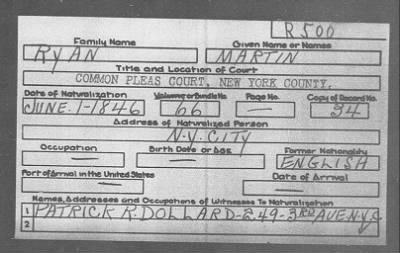 R 500
Family Name Given Name or Names
RYAN MARTIN
Title and Location of Court
COMMON PLEAS COURT, NEW YORK COUNTY.
Date of Naturalization Volume or Bundle No. Page No. Copy of Record No.
JUNE. 1-1846 66 — 34
Address of Naturalized Person
N.Y. CITY
Occupation Birth Date or Age Former Nationality
— — ENGLISH
Port of Arrival in the United States Date of Arrival
— —
Names, Addresses and Occupations of Witnesses To Naturalization
1 PATRICK R. DOLLARD-249-3RD AVE N.Y.C
2